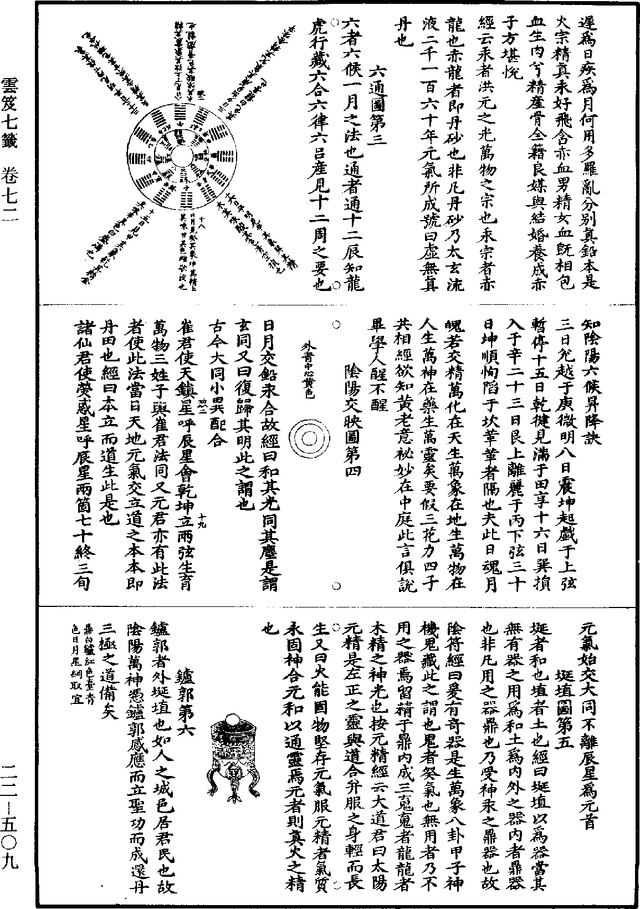 遲為日疾為月何用多羅亂分別真鉛本是
火宗精真汞好飛含亦血男精女血既相包
血生肉兮精產骨全藉良媒與結婚養成亦
子方堪悅
經云汞者洪元之光萬物之宗也汞宗者亦
龍也赤龍者即丹砂也非凡丹砂乃太玄流
液二千一百六十年元氣所成號曰虛無真
丹也
六通圖第三
六者六候一月之法也通者通十二辰知龍
虎行藏六合六律六呂產見十二周之要也
十八
知陰陽六候昇降訣
三日兊越于庚微明八日震坤起戲于上弦
暫停十五日乾健見滿于田享十六日巽損
入于辛二十三日艮上離麗于丙下弦三十
日坤順恂蹈于坎葦葦者陽也夫此日魂月
魄若交精萬化在天生萬象在地生萬物在
人生萬神在藥生萬靈矣要假三花力四子
共相經欲知黃老意祕妙在中庭此言俱說
畢學人醒不醒
陰陽交映圖第四
外青中心黃色
日月交鉛汞合故經曰和其光同其塵是謂
玄同又曰復歸其明此之謂也
古今大同小異配合
崔君使天鎮星呼辰星會乾坤立兩弦生育
十九
萬物三姓子與崔君法同又元君亦有此法
者使此法當日天地元氣交立道之本本即
丹田也經曰本立而道生此是也
諸仙君使熒惑星呼辰星兩箇七十終三旬
元氣始交大同不離辰星為元首
埏埴圖第五
埏者和也埴者土也經曰埏埴以為器當其
無有器之用為和土為內外之器內者鼎器
也非凡用之器鼎也乃受神汞之鼎器也故
陰符經曰爰有奇器是生萬象八卦甲子神
機鬼藏此之謂也鬼者癸氣也無用者乃不
用之器焉留精于鼎內成三䰟䰟者龍龍者
木精之神光也按元精經云大道君曰太陽
元精是左正之靈與道合并服之身輕而長
生又曰火能固物堅存元氣服元精者氣質
永固神合元和以通靈焉元者則真火之精
也
鑪郭第六
鑪郭者外埏埴也如人之城邑居君民也故
陰陽萬神憑鑪郭感應而立聖功而成還丹
三極之道備矣
鼎白鑪紅色臺青
色日月星綱取宜
雲笈七籤 卷七二
二二—五〇九